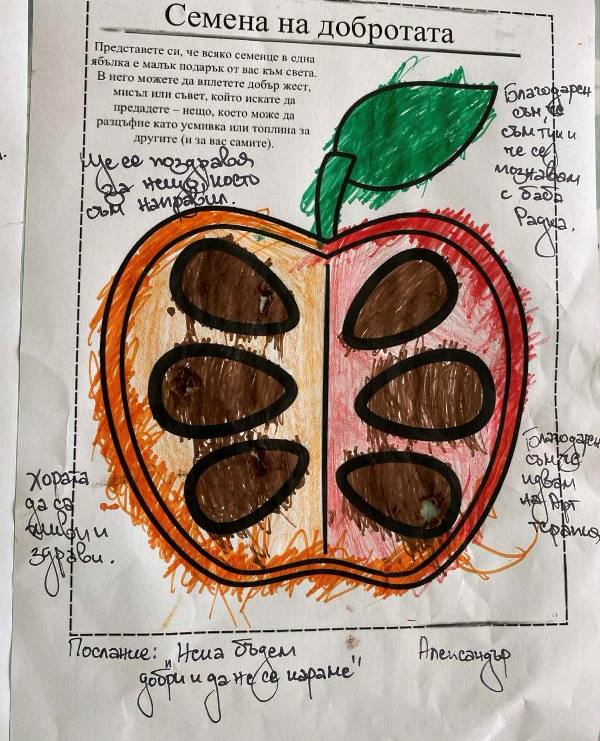 Семена на добротата
Представете си, че всяко семенце в една
ябълка е малък подарък от вас към света.
В него можете да вплетете добър жест,
мисъл или съвет, който искате да
предадете – нещо, което може да
разцъфне като усмивка или топлина за
другите (и за вас самите).
Ще се поздравя
за нещо, което
съм направил.
Благодарен
съм, че
съм тук и
че се
познавам
с баба
Радка.
Хората
да са
живи и
здрави.
Благодарен
съм че
идвам
на Арт
терапия
Послание: „Нека бъдем
добри и да не се караме"
Александър